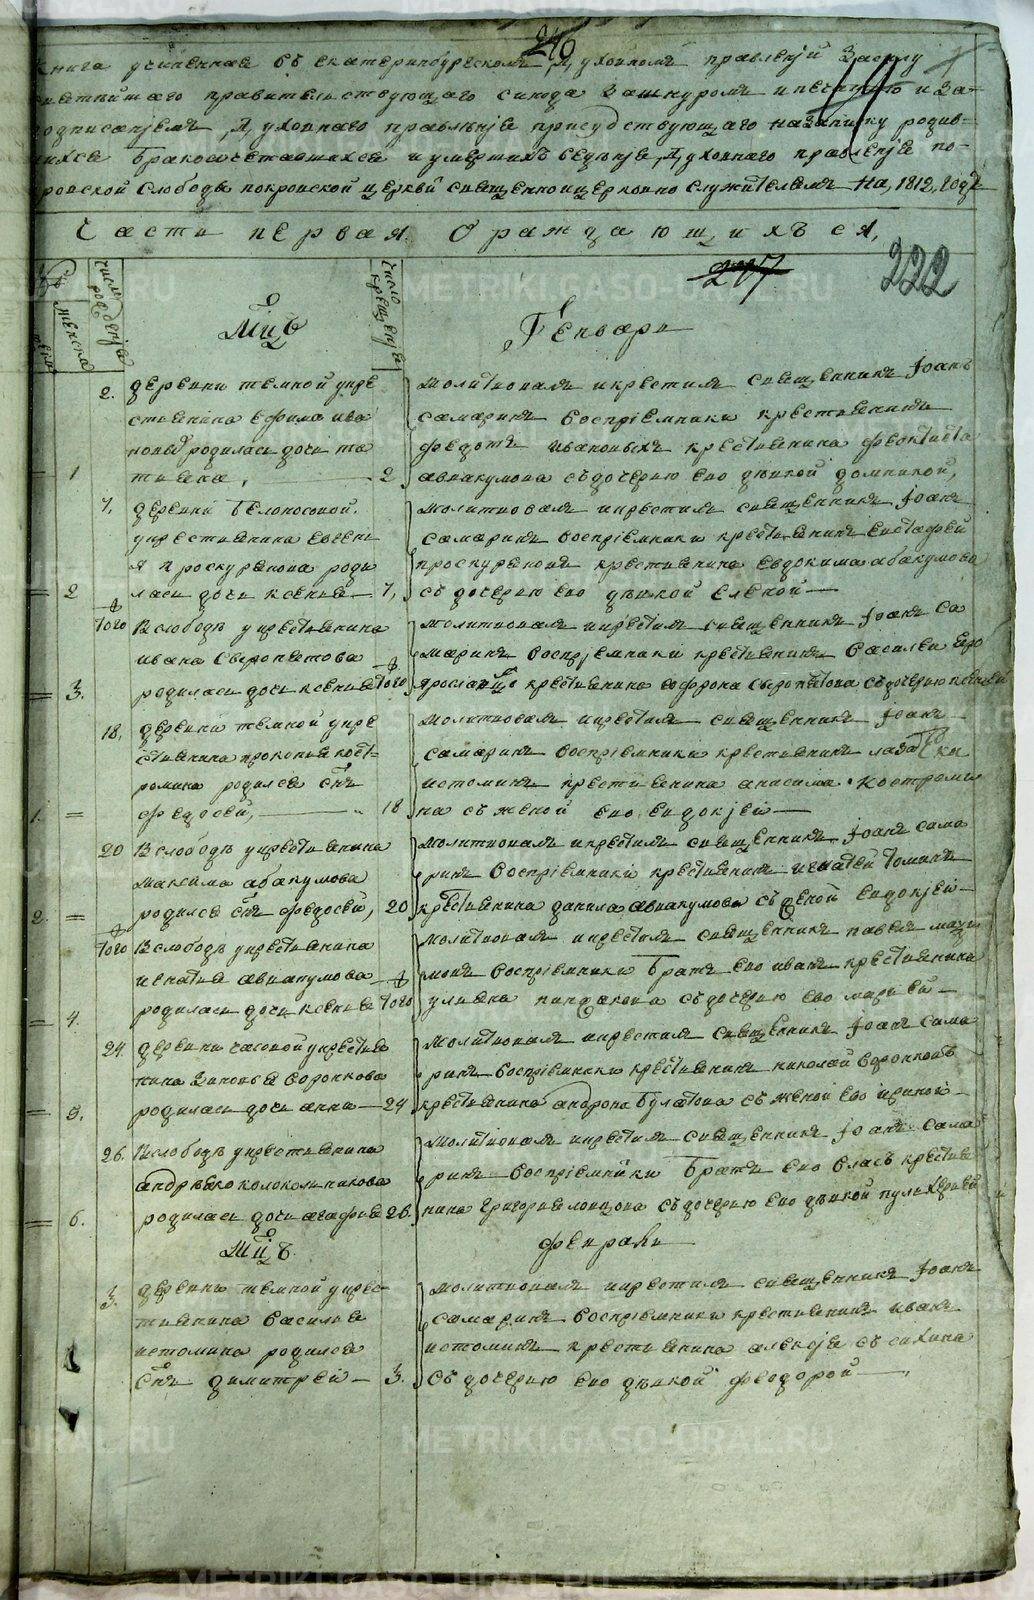 240
Книга учиненная въ екатеринбургскомъ духовномъ правленiи Засилу
правительствующаго синода Зашнуромъ ипечатью иЗа-
подписанiемъ, духовнаго правленiя присудствующаго назаписку родив-
шихся бракосочетавшихся иумершихъ ведення, духовнаго правленiя по-
кровской слободы покровской церкви священноицерковно служителемъ на, 1812, годъ
Часть первая. О раждающихъся,
217
222
число рожденiя
число крещенiя
женска
Мцъ
Генварь
2. деревни темной укре
стьянина ефима ива
новы родилась дочь та
тиана, 2
1
молитвовалъ икрестилъ священникъ Iоанъ
самаринъ воспрiемники крестьянинъ
федотъ ивановыхъ крестьянина феоктиста
авакумова съдочерью ево дѣвкой домникой,
7. деревни белоносовой
укрестьянина евгени
я проскурекова роди
лась дочь ксения 7,
2
молитвовалъ икрестилъ священникъ Iоанъ
самаринъ воспрiемники крестьянинъ евстафей
проскурековъ крестьянина евдокима абакумова
съ дочерью ево дѣвкой еленой
того Вслободѣ укрестьянина
ивана Сыропятова
родилась дочь ксения того
3.
молитвовалъ икрестилъ священникъ Iоанъ са
маринъ воспрiемники крестьянинъ василеи
крестьянина софрона сыропятова съдочерью
18. деревни темной укре
стьянина прокопья кост-
ромина родился снъ
федосей, 18
1. =
молитвовалъ икрестилъ священникъ Iоанъ
самаринъ воспрiемники крестьянинъ
истоминъ крестьянина анисима костроми
на съ женой ево евдокiей
20 Вслободѣ укрестьянина
максима абакумова
родился снъ федосей, 20
2. =
молитвовалъ икрестилъ священникъ Iоанъ сама
ринъ воспрiемники крестьянинъ игнатей томинъ
крестьянина данила авакумова съ женой евдокiей
того Вслободѣ укрестьянина
игнатья авакумова
родилась дочь ксения того
4.
молитвовалъ икрестилъ священникъ павелъ
воспрiемники братъ ево иванъ крестьянина
улиана пиндакова съдочерью ево марией
24. деревни часовой укрестья
нина Зиновья воронкова
родилась дочь анна 24
5.
молитвовалъ икрестилъ священникъ Iоанъ сама
ринъ воспрiемники крестьянинъ николай воронковъ
крестьянина андрона булатова съ женой ево ириной
26. Вслободѣ укрестьянина
андрея колокольникова
родилась дочь агафия 26.
6.
молитвовалъ икрестилъ священникъ Iоанъ сама
ринъ воспрiемники братъ ево власъ крестья
нина григорья ломцова съдочерью ево дѣвкой пулихерией
Мцъ
февраль
3. деревни темной укрес-
тьянина василья
истомина родился
снъ димитрей 3.
1
молитвовалъ икрестилъ священникъ Iоанъ
самаринъ воспрiемники крестьянинъ иванъ
истоминъ крестьянина алексея съсихина
съ дочерью ево дѣвкой феодорой
METRIKI.GASO-URAL.RU